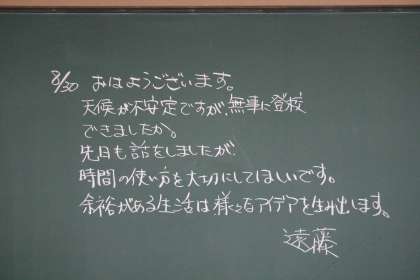 8/30 おはようございます。
天候が不安定ですが、無事に登校
できましたか。
先日も話をしましたが
時間の使い方を大切にしてほしいです。
余裕がある生活は様々なアイデアを生み出します。
遠藤